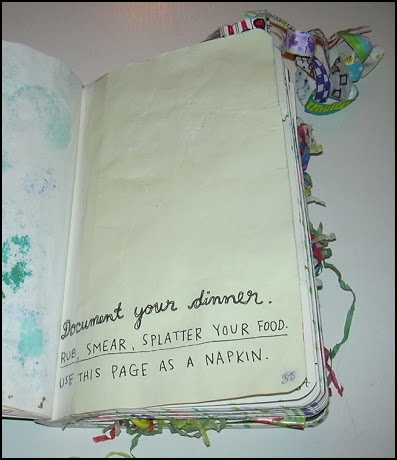 Document your dinner.
RUB, SMEAR, SPLATTER YOUR FOOD.
USE THIS PAGE AS A NAPKIN.